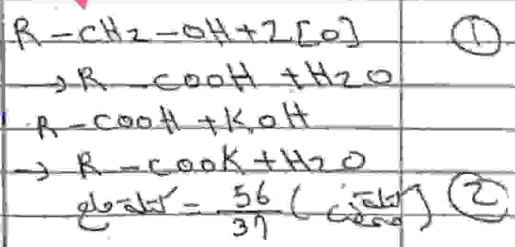 R-CH2-OH+2[O] ①
→ R-COOH + H2O
R-COOH + KOH
→ R-COOK + H2O
= 56/37 ( ) ②